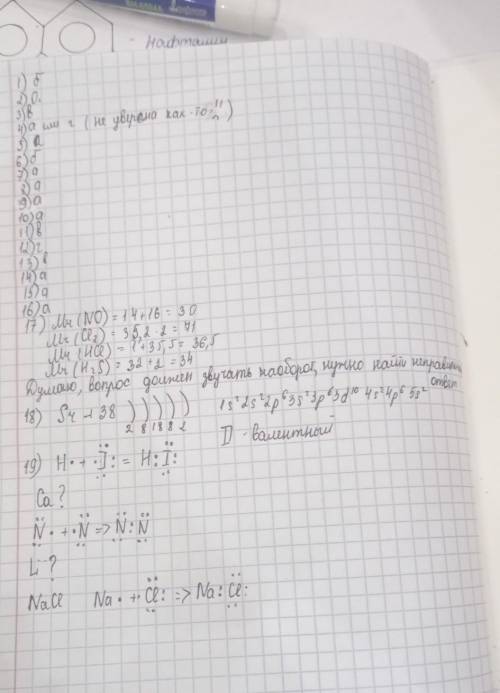 - Нафталин
1) б
2) а
3) в
4) а или г (не уверена как-то)
5) а
6) б
7) а
8) а
9) а
10) а
11) в
12) г
13) в
14) а
15) а
16) а
17) Mr (NO) = 14+16 = 30
Mr (Cl₂) = 35,2·2 = 71
Mr (HCl) = 1+35,5 = 36,5
Mr (H₂S) = 32+2 = 34
Думаю, вопрос должен звучать наоборот, нужно найти неправильный ответ
18) Sr +38 ) ) ) ) )
2 8 18 8 2
1s² 2s² 2p⁶ 3s² 3p⁶ 3d¹⁰ 4s² 4p⁶ 5s²
II - валентный
19) H· + ·I: = H:I:
Ca?
N· + ·N => N:N
Li-?
NaCl Na· + ·Cl: => Na:Cl: